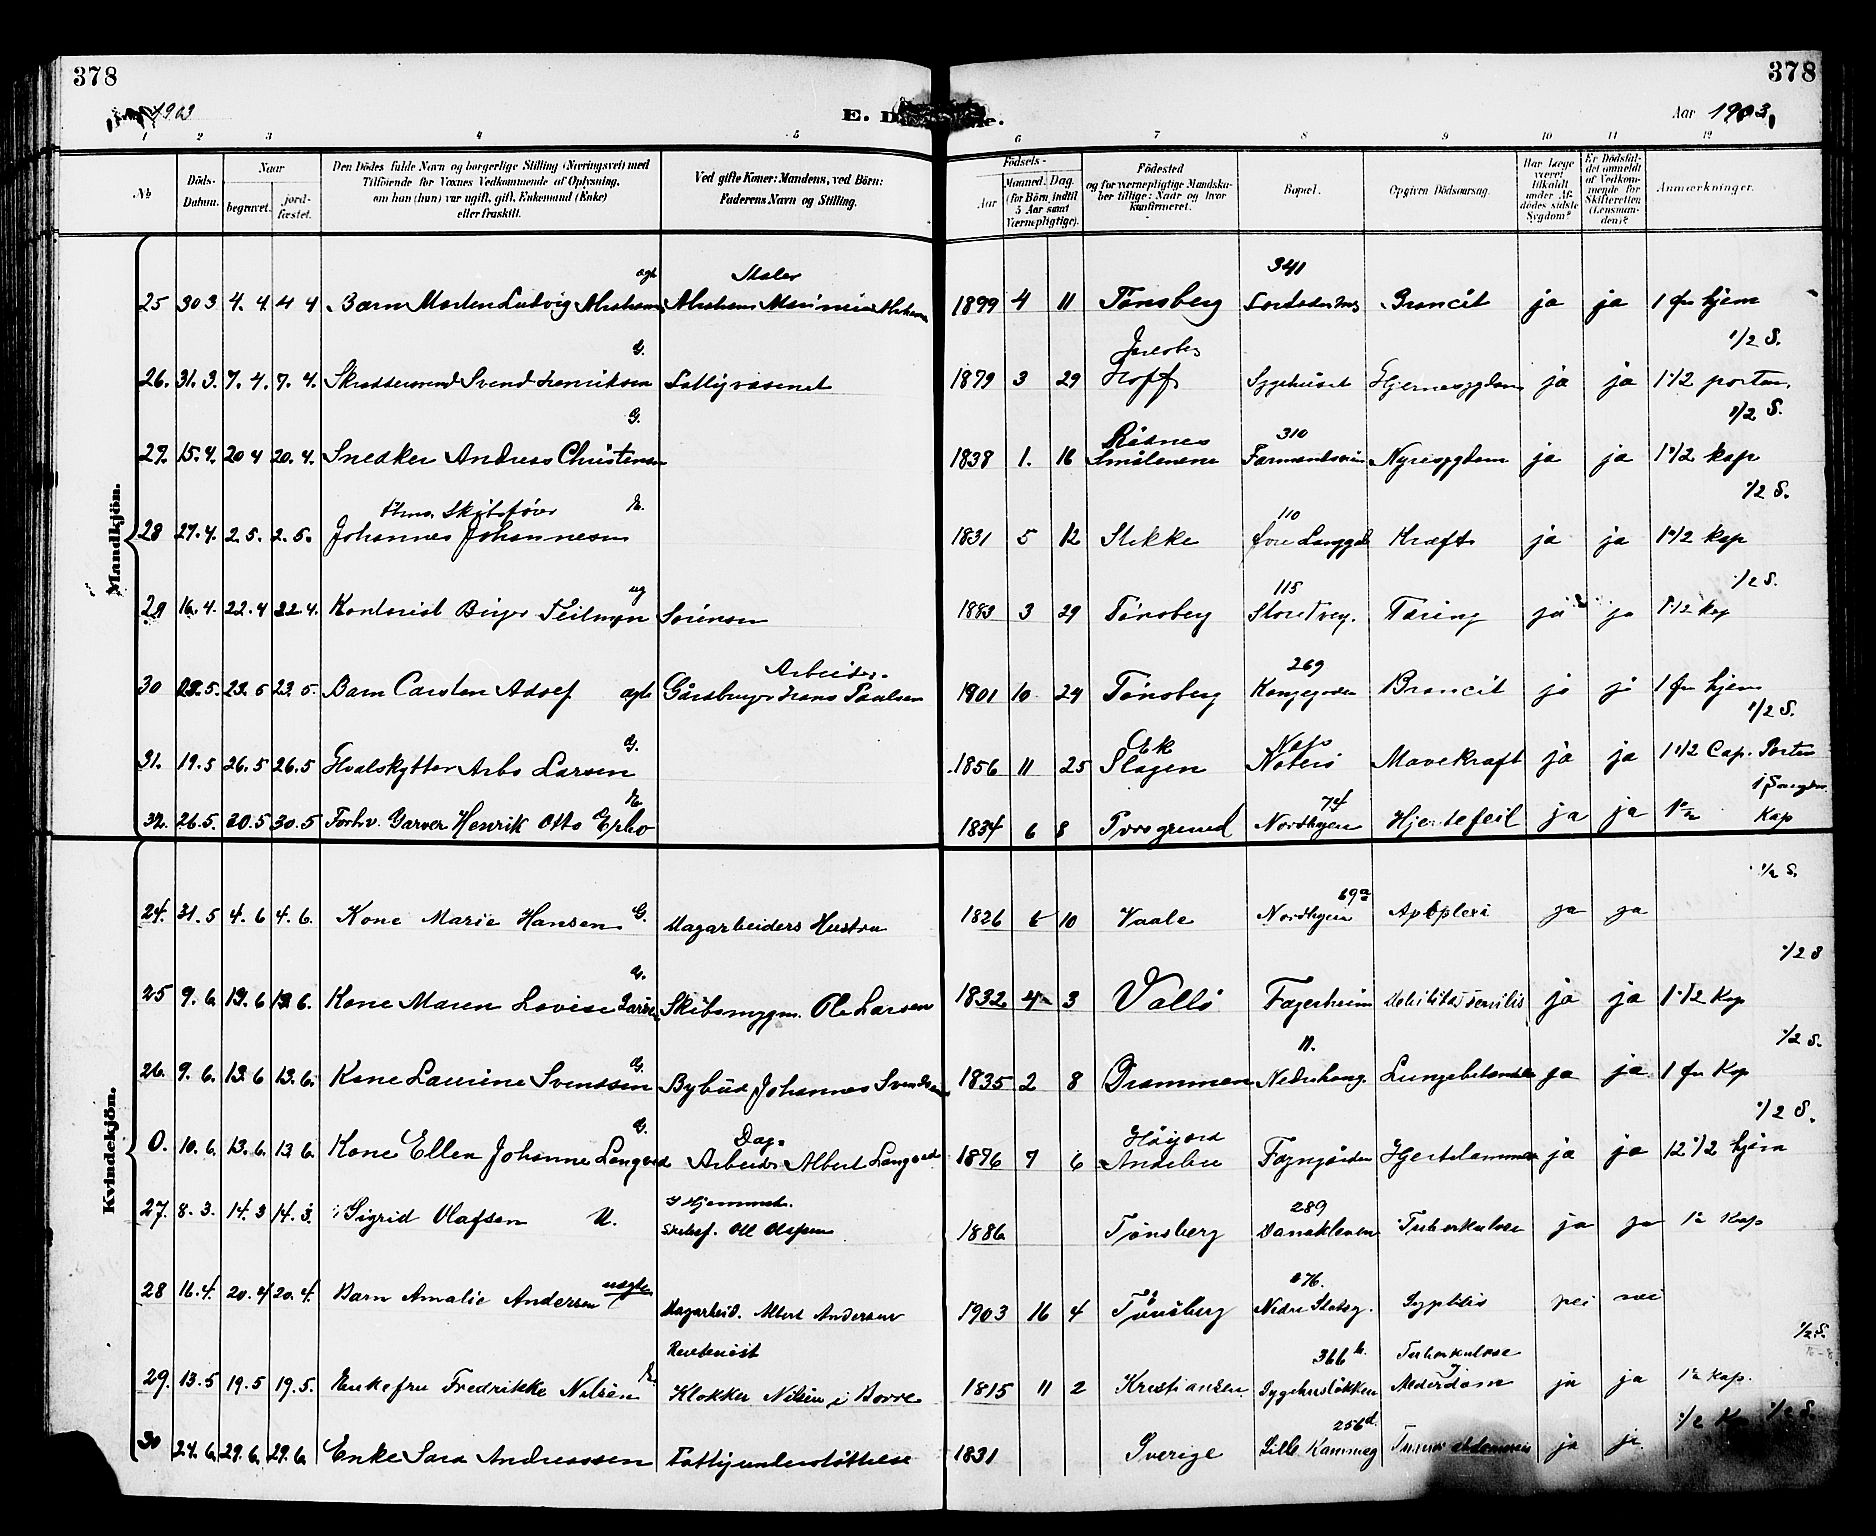 378
378
1903
E. D
Aar 1903.
1 2 3 4 5 6 7 8 9 10 11 12
№
Döds-Datum.
Naar
begravet.
jord-fæstet.
Den Dödes fulde Navn og borgerlige Stilling (Næringsvei) med
Tilföiende for Voxnes Vedkommende af Oplysning,
om han (hun) var ugift, gift, Enkemand (Enke)
eller fraskilt.
Ved gifte Koner: Mandens, ved Börn:
Faderens Navn og Stilling.
Födsels-
Aar
Maaned. Dag.
(for Börn indtil
5 Aar samt
Værnepligtige).
Födested
og for værnepligtige Mandska-
ber tillige: Naar og hvor
konfirmeret.
Bopæl.
Opgiven Dödsaarsag.
Har Læge
været
tilkaldt
under Af-
dödes sidste
Sygdom?
Er Dödsfal-
det anmeldt
af Vedkom-
mende for
Skifteretten
(Lensman-
den)?
Anmærkninger.
Mandkjön.
25 30 3 4. 4. 4 4 Barn Morten Ludvig Abrahams ægte Abraham 1899 4 11 Tönsberg 341 Broncit ja ja 1 fm hjem
26. 31. 3. 7. 4. 7. 4. Svend Henriksen G. Fattigvæsenet 1879 3 29 Hoff Sygehuset Hjernesygdom ja ja 1 1/2 porten 1/2 S.
27. 15. 4. 20 4 20. 4. Snedker Andreas Christensen G. 1838 1. 16 Smålenene 310 Nyresygdom ja ja 1 1/2 kap 1/2 S.
28 27. 4. 2. 5. 2. 5. Johannes Johannesen E. 1831 5 12 Stokke 110 Kræft ja ja 1 1/2 kap 1/2 S.
29 16. 4. 22. 4 22. 4. Kontorist Birger ug Sörensen 1883 3 29 Tönsberg 115 Tæring ja ja 1 1/2 kap 1/2 S.
30 23. 5 23. 5. Barn Carsten Adolf ægte Gårdbruger Hans Paulsen Arbeider 1901 10 24 Tönsberg 269 Broncit ja ja 1 fm hjem
31. 19. 5 26. 5 26. 5 Hvalskytter Arbo Larsen G. 1856 11 25 Ek Slagen Nöterö Mavekræft ja ja 1 1/2 Cap. Porten 1/2 S.
32. 26. 5. 30. 5 30. 5 Forhv. Garver Henrik Otto E. 1834 6 8 Porsgrund 74 Nordbyen Hjertefeil ja ja Kap
Kvindekjön.
24. 31. 5 4. 6 4. 6. Kone Marie Hansen G. Dagarbeiders Hustru 1826 10 Vaale 69a Nordbyen Apoplexi ja ja 1/2 S.
25 9. 6. 13. 6 13. 6. Kone Maren Lovise Larsen G. Ole Larsen 1832 4 3 Vallö Fagerheim Debilitas senilis ja ja 1 1/2 Kap 1/2 S
26. 9. 6. 13. 6 13. 6. Kone Laurine Svendsen G. Bybud Johannes Svendsen 1835 2 8 Drammen 11. Lungebetændelse ja ja 1 fm Kap 1/2 S.
0. 10. 6. 13. 6. 13 6. Kone Ellen Johanne G. Dag-Arbeider Albert 1876 7 6 Höijord Andebu Hjertelammelse ja ja 12 1/2 hjem 1/2 S.
27. 8. 3. 14. 3 14. 3. Sigrid Olafsen U. I Hjemmet. 1886 Tönsberg 289 Danekleven Tuberkulose ja ja Kap
28 16. 4. 20. 4 20. 4. Barn Amalie Andersen uægte Dagarbeid. Albert Andersen 1903 16 4 Tönsberg 276. Nedre Slotsg. Syphilis nei nei
29. 13. 5 19. 5 19. 5. Enkefru Fredrikke Nilsen E. Klokker Nilsen i Borre 1815 11 2 Kristiansen 366 b. Sygehuslökken Tuberkulose Alderdom ja ja Kap. 1/2 S.
30 24. 6. 29. 6. 29. 6 Enke Sara Andreassen Fattigunderstöttelse 1831 Sverige 256 d. Lille ja ja 1/2 S.